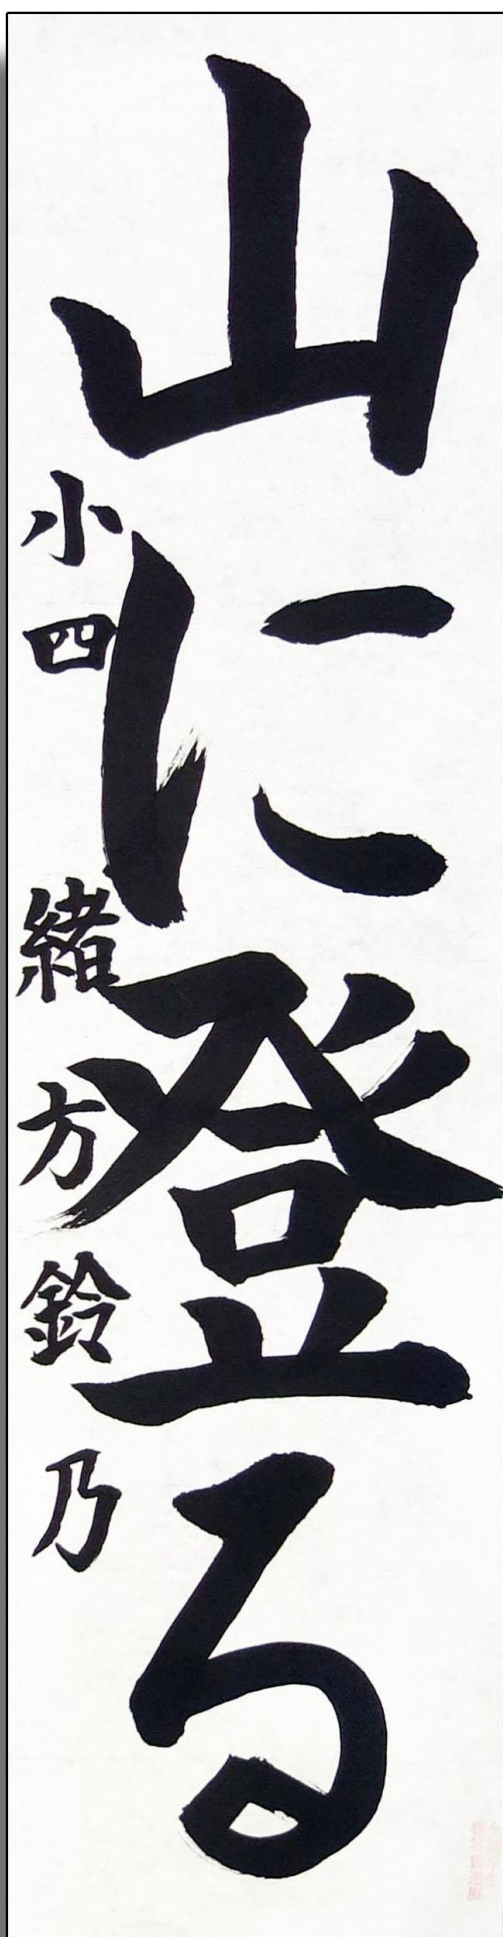 山に登る
小四 緒方鈴乃